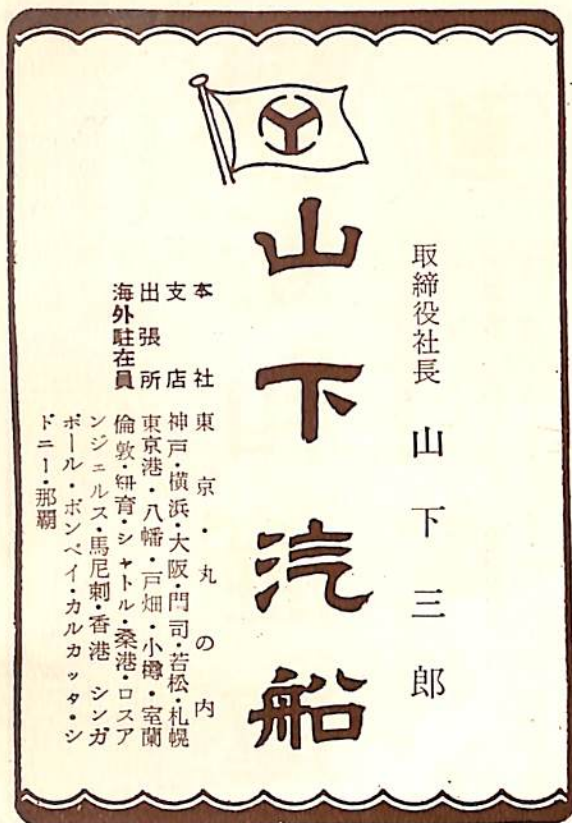 取締役社長 山下三郎
山下汽船
本社 東京・丸の内
支店 神戸・横浜・大阪・門司・若松・札幌
出張所 東京港・八幡・戸畑・小樽・室蘭
海外駐在員 倫敦・紐育・シャトル・桑港・ロスア
ンジェルス・馬尼剌・香港 シンガ
ポール・ボンベイ・カルカッタ・シ
ドニー・那覇